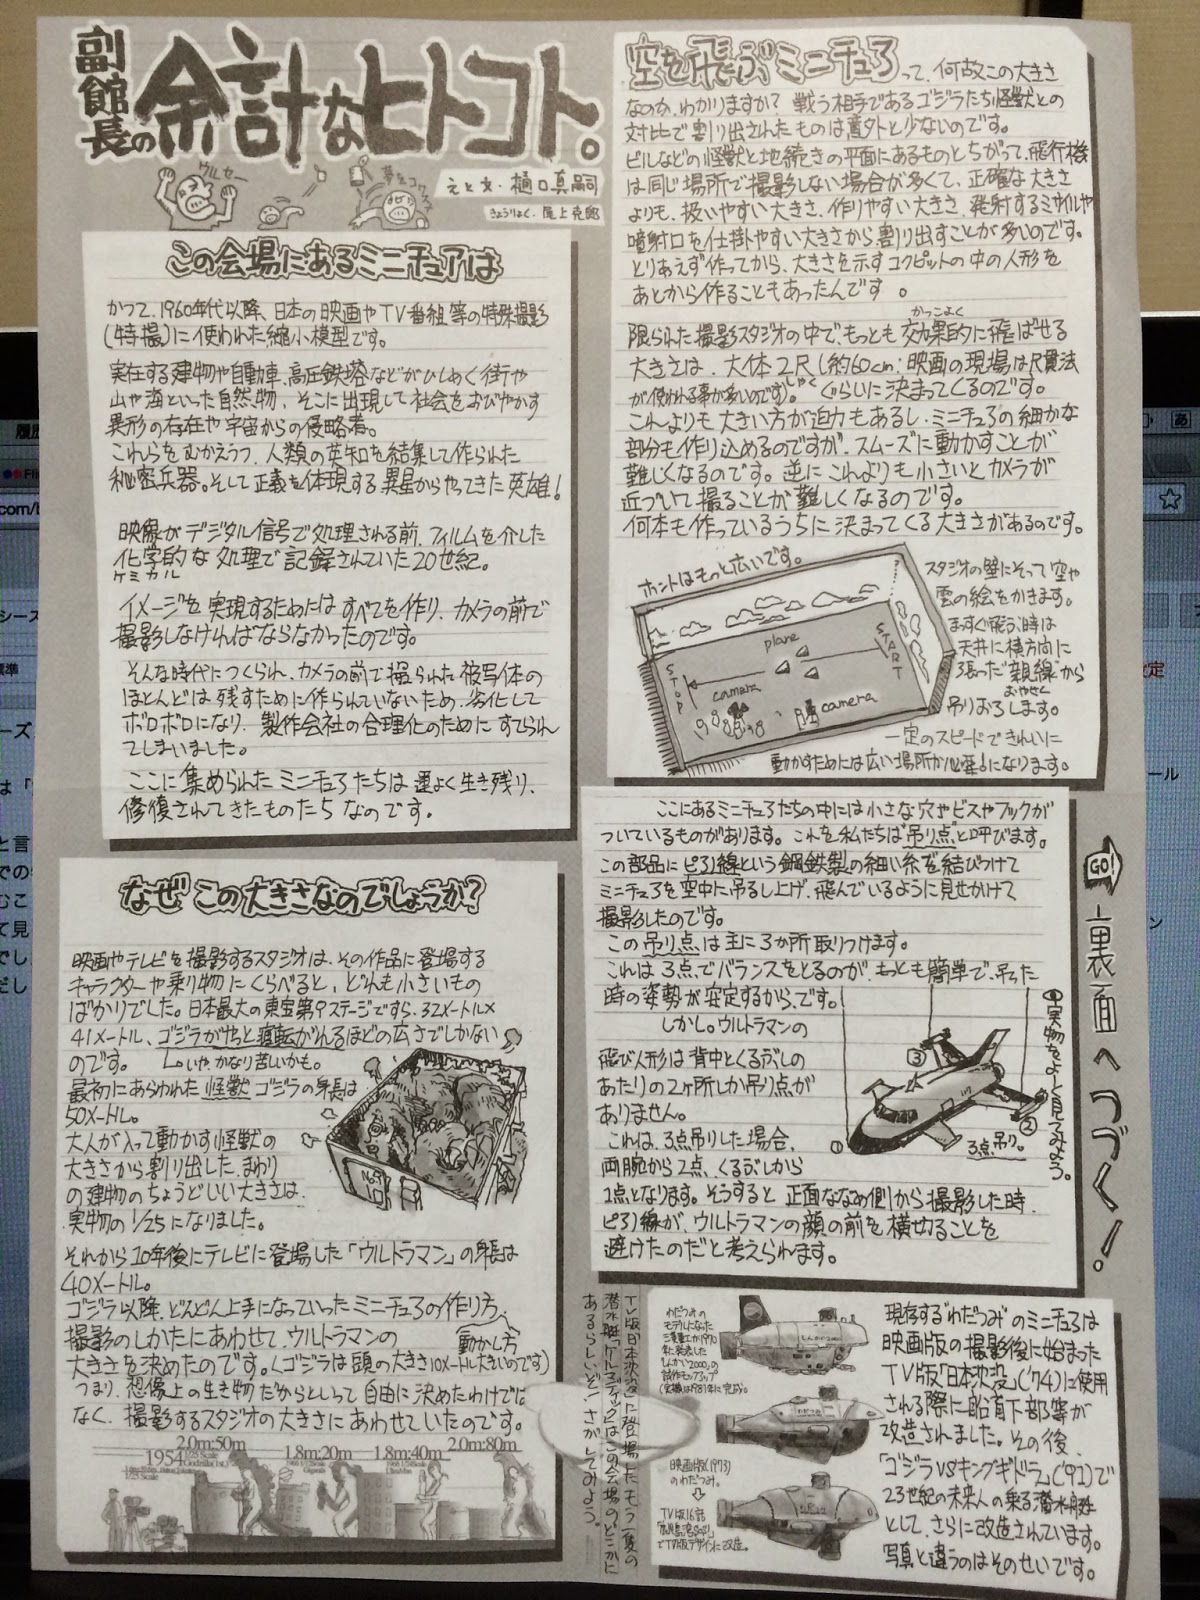 副館長の余計なヒトコト。
ウルセー
夢をコワス
え と 文・樋口真嗣
きょうりょく・尾上克郎
この会場にあるミニチュアは
かつて、1960年代以降、日本の映画やTV番組等の特殊撮影
(特撮)に使われた縮小模型です。
実在する建物や自動車、高圧鉄塔などがひしめく街や
山や海といった自然物、そこに出現して社会をおびやかす
異形の存在や宇宙からの侵略者。
これらをむかえうつ、人類の英知を結集して作られた
秘密兵器。そして正義を体現する異星からやってきた英雄!
映像がデジタル信号で処理される前、フィルムを介した
化学的な処理で記録されていた20世紀。
ケミカル
イメージを実現するためにはすべてを作り、カメラの前で
撮影しなければならなかったのです。
そんな時代につくられ、カメラの前で撮られた被写体の
ほとんどは残すために作られていないため、劣化して
ボロボロになり、製作会社の合理化のためにすてられ
てしまいました。
ここに集められたミニチュアたちは運よく生き残り、
修復されてきたものたちなのです。
なぜこの大きさなのでしょうか?
映画やテレビを撮影するスタジオは、その作品に登場する
キャラクターや乗り物にくらべると、どれも小さいもの
ばかりでした。日本最大の東宝第9ステージですら、32メートル×
41メートル、ゴジラがやっと寝転がれるほどの広さでしかない
のです。 いや、かなり苦しいかも。
最初にあらわれた怪獣ゴジラの身長は
50メートル。
大人が入って動かす怪獣の
大きさから割り出した、まわり
の建物のちょうどいい大きさは、
実物の1/25になりました。
No.9
それから10年後にテレビに登場した「ウルトラマン」の身長は
40メートル。
ゴジラ以降、どんどん上手になっていったミニチュアの作り方、
撮影のしかたにあわせて、ウルトラマンの
動かし方
大きさを決めたのです。(ゴジラは頭の大きさ10メートル大きいのです)
つまり、想像上の生き物だからといって自由に決めたわけでは
なく、撮影するスタジオの大きさにあわせていたのです。
2.0m:50m
1954
1/25 Scale
Godzilla(1st.)
1.8m:20m
1.8m:40m
2.0m:80m
空を飛ぶミニチュアって、何故この大きさ
なのか、わかりますか? 戦う相手であるゴジラたち怪獣との
対比で割り出されたものは意外と少ないのです。
ビルなどの怪獣と地続きの平面にあるものとちがって、飛行機
は同じ場所で撮影しない場合が多くて、正確な大きさ
よりも、扱いやすい大きさ、作りやすい大きさ、発射するミサイルや
噴射口を仕掛やすい大きさから割り出すことが多いのです。
とりあえず作ってから、大きさを示すコクピットの中の人形を
あとから作ることもあったんです。
かっこよく
限られた撮影スタジオの中で、もっとも効果的に飛ばせる
大きさは、大体2尺(約60cm:映画の現場は尺貫法
が使われる事が多いのです)ぐらいに決まってくるのです。
しゃく
これよりも大きい方が迫力もあるし、ミニチュアの細かな
部分も作り込めるのですが、スムーズに動かすことが
難しくなるのです。逆にこれよりも小さいとカメラが
近づいて撮ることが難しくなるのです。
何本も作っているうちに決まってくる大きさがあるのです。
ホントはもっと広いです。
START
plane
STOP
camera
camera
スタジオの壁にそって空や
雲の絵をかきます。
まっすぐ飛ぶ時は
天井に横方向に
張った"親線"から
おやせん
吊りおろします。
一定のスピードできれいに
動かすためには広い場所が必要になります。
ここにあるミニチュアたちの中には小さな穴やビスやフックが
ついているものがあります。これを私たちは吊り点と呼びます。
この部品にピアノ線という鋼鉄製の細い糸を結びつけて
ミニチュアを空中に吊るし上げ、飛んでいるように見せかけて
撮影したのです。
この吊り点は主に3か所取りつけます。
これは3点でバランスをとるのがもっとも簡単で、吊った
時の姿勢が安定するからです。
しかし。ウルトラマンの
飛び人形は背中とくるぶしの
あたりの2ヶ所しか吊り点が
ありません。
これは、3点吊りした場合、
両腕から2点、くるぶしから
1点となります。そうすると正面ななめ側から撮影した時、
ピアノ線が、ウルトラマンの顔の前を横切ることを
避けたのだと考えられます。
①
②
③
3点吊り。
実物をよーく見てみよう。
GO!
裏面へつづく!
TV版日本沈没に登場したもう一隻の
潜水艇「ケルマディック」はこの会場のどこかに
あるらしいぞ! さがしてみよう。
わだつみの
モデルになった
三菱重工が1970
年に発表した
しんかい2000の
試作モックアップ
(実機は1981年に完成。
映画版(1973)
のわだつみ。
TV版16話
でTV版デザインに改造。
現存する"わだつみ"のミニチュアは
映画版の撮影後に始まった
TV版「日本沈没」('74)に使用
される際に船首下部等が
改造されました。その後、
「ゴジラVSキングギドラ」('91)で
23世紀の未来人の乗る潜水艇
として、さらに改造されています。
写真と違うのはそのせいです。